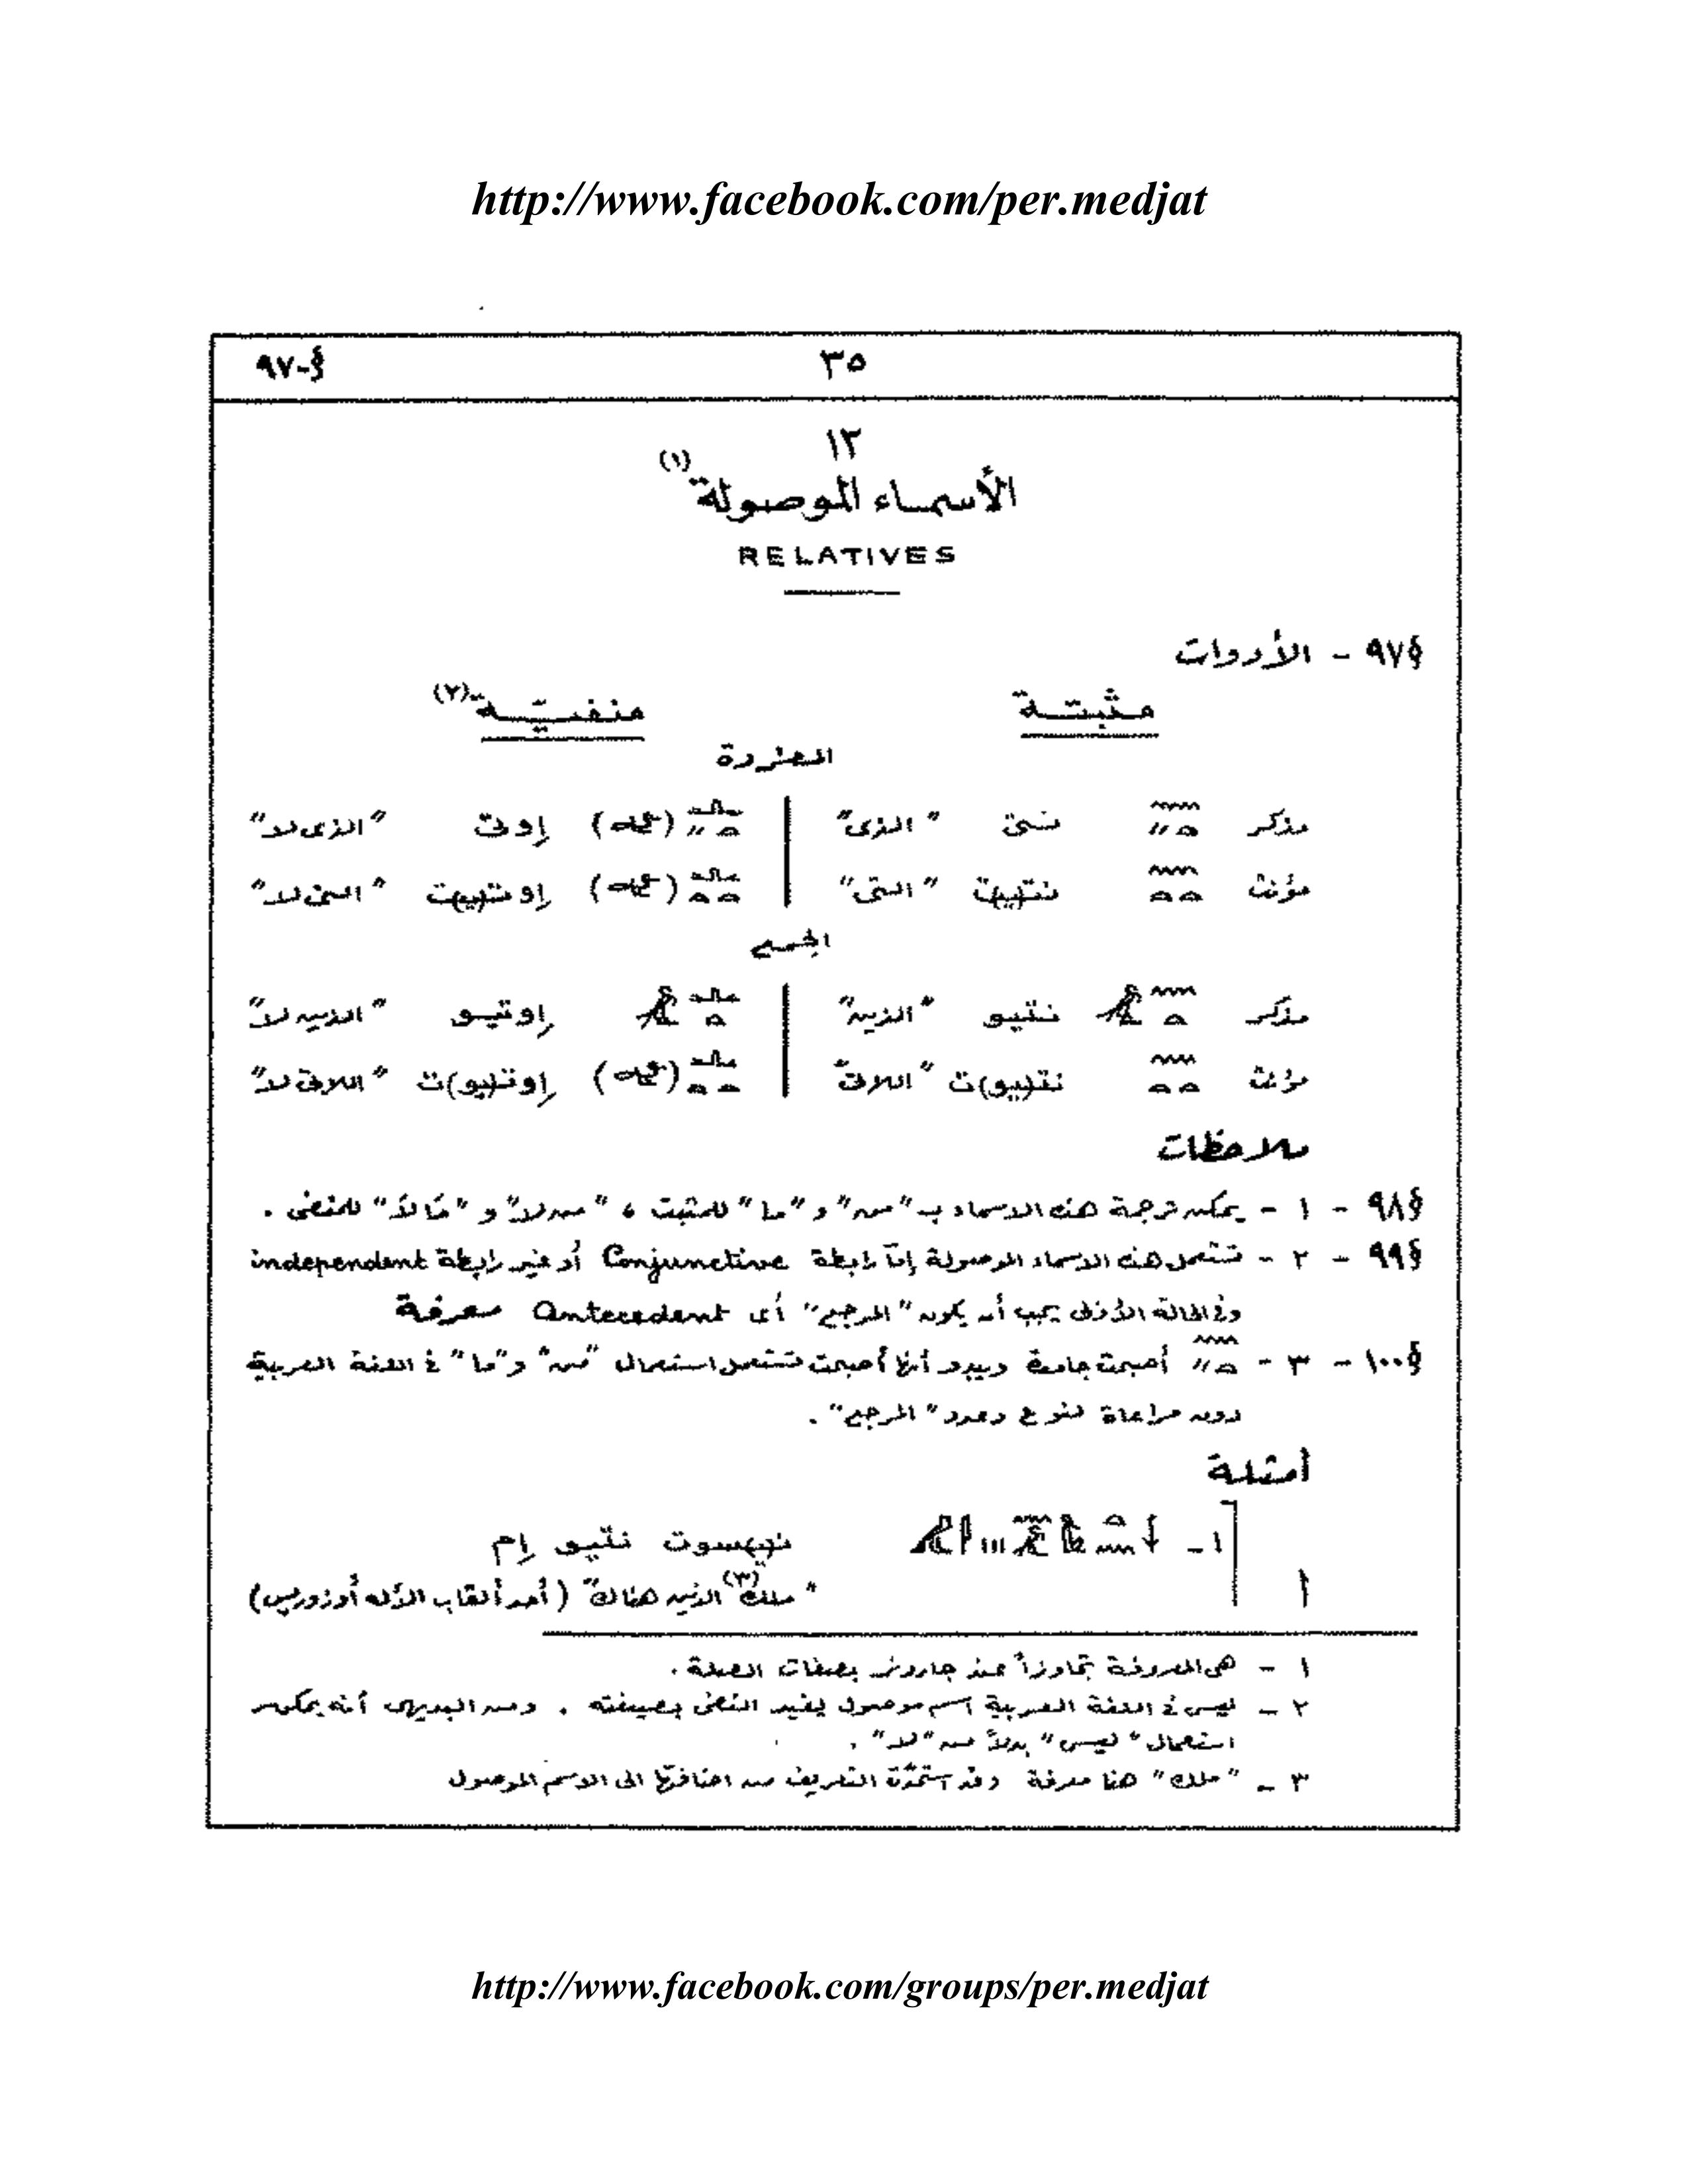 http://www.facebook.com/per.medjat
٣٥ §-٩٧
١٣
الأسماء الموصولة (١)
RELATIVES
§٩٧ - الأدوات
مثبتة منفيّة (٢)
المفردة
مذكر نتى "الذى" إوتى "الذى لا"
مؤنث نت(ي)ت "التى" إوت(ي)ت "التى لا"
الجمع
مذكر نتيو "الذين" إوتيو "الذين لا"
مؤنث نت(يو)ت "اللاتى" إوت(يو)ت "اللاتى لا"
ملاحظات
§٩٨ - ١ - يمكن ترجمة هذه الاسماء ب "من" و "ما" للمثبت ، "من لا" و "مَا لاَ" للمنفى .
§٩٩ - ٢ - تستعمل هذه الاسماء الموصولة إمّا رابطة Conjunctive أو غير رابطة independent
وفى الحالة الأولى يجب أن يكون "المرجع" أى Antecedent معرفة
§١٠٠ - ٣ - أصبحت جامدة ويبدو أنها أصبحت تستعمل استعمال "من" و "ما" فى اللغة العربية
دون مراعاة لنوع وعدد "المرجع" .
أمثلة
١ - ن(ي)سوت نتيو إم
أ "ملك (٣) الذين هناك" (أحد ألقاب الأله أوزوريس)
١ - هى المعروفة تجاوزاً عند جاردنر بصفات الصلة .
٢ - ليس فى اللغة العربية اسم موصول يفيد النفى بصيغته . ومن البديهى أنه يمكن
استعمال "ليس" بدلاً من "لا" .
٣ - "ملك" هنا معرفة وقد استمدّت التعريف من اضافتها الى الاسم الموصول
http://www.facebook.com/groups/per.medjat